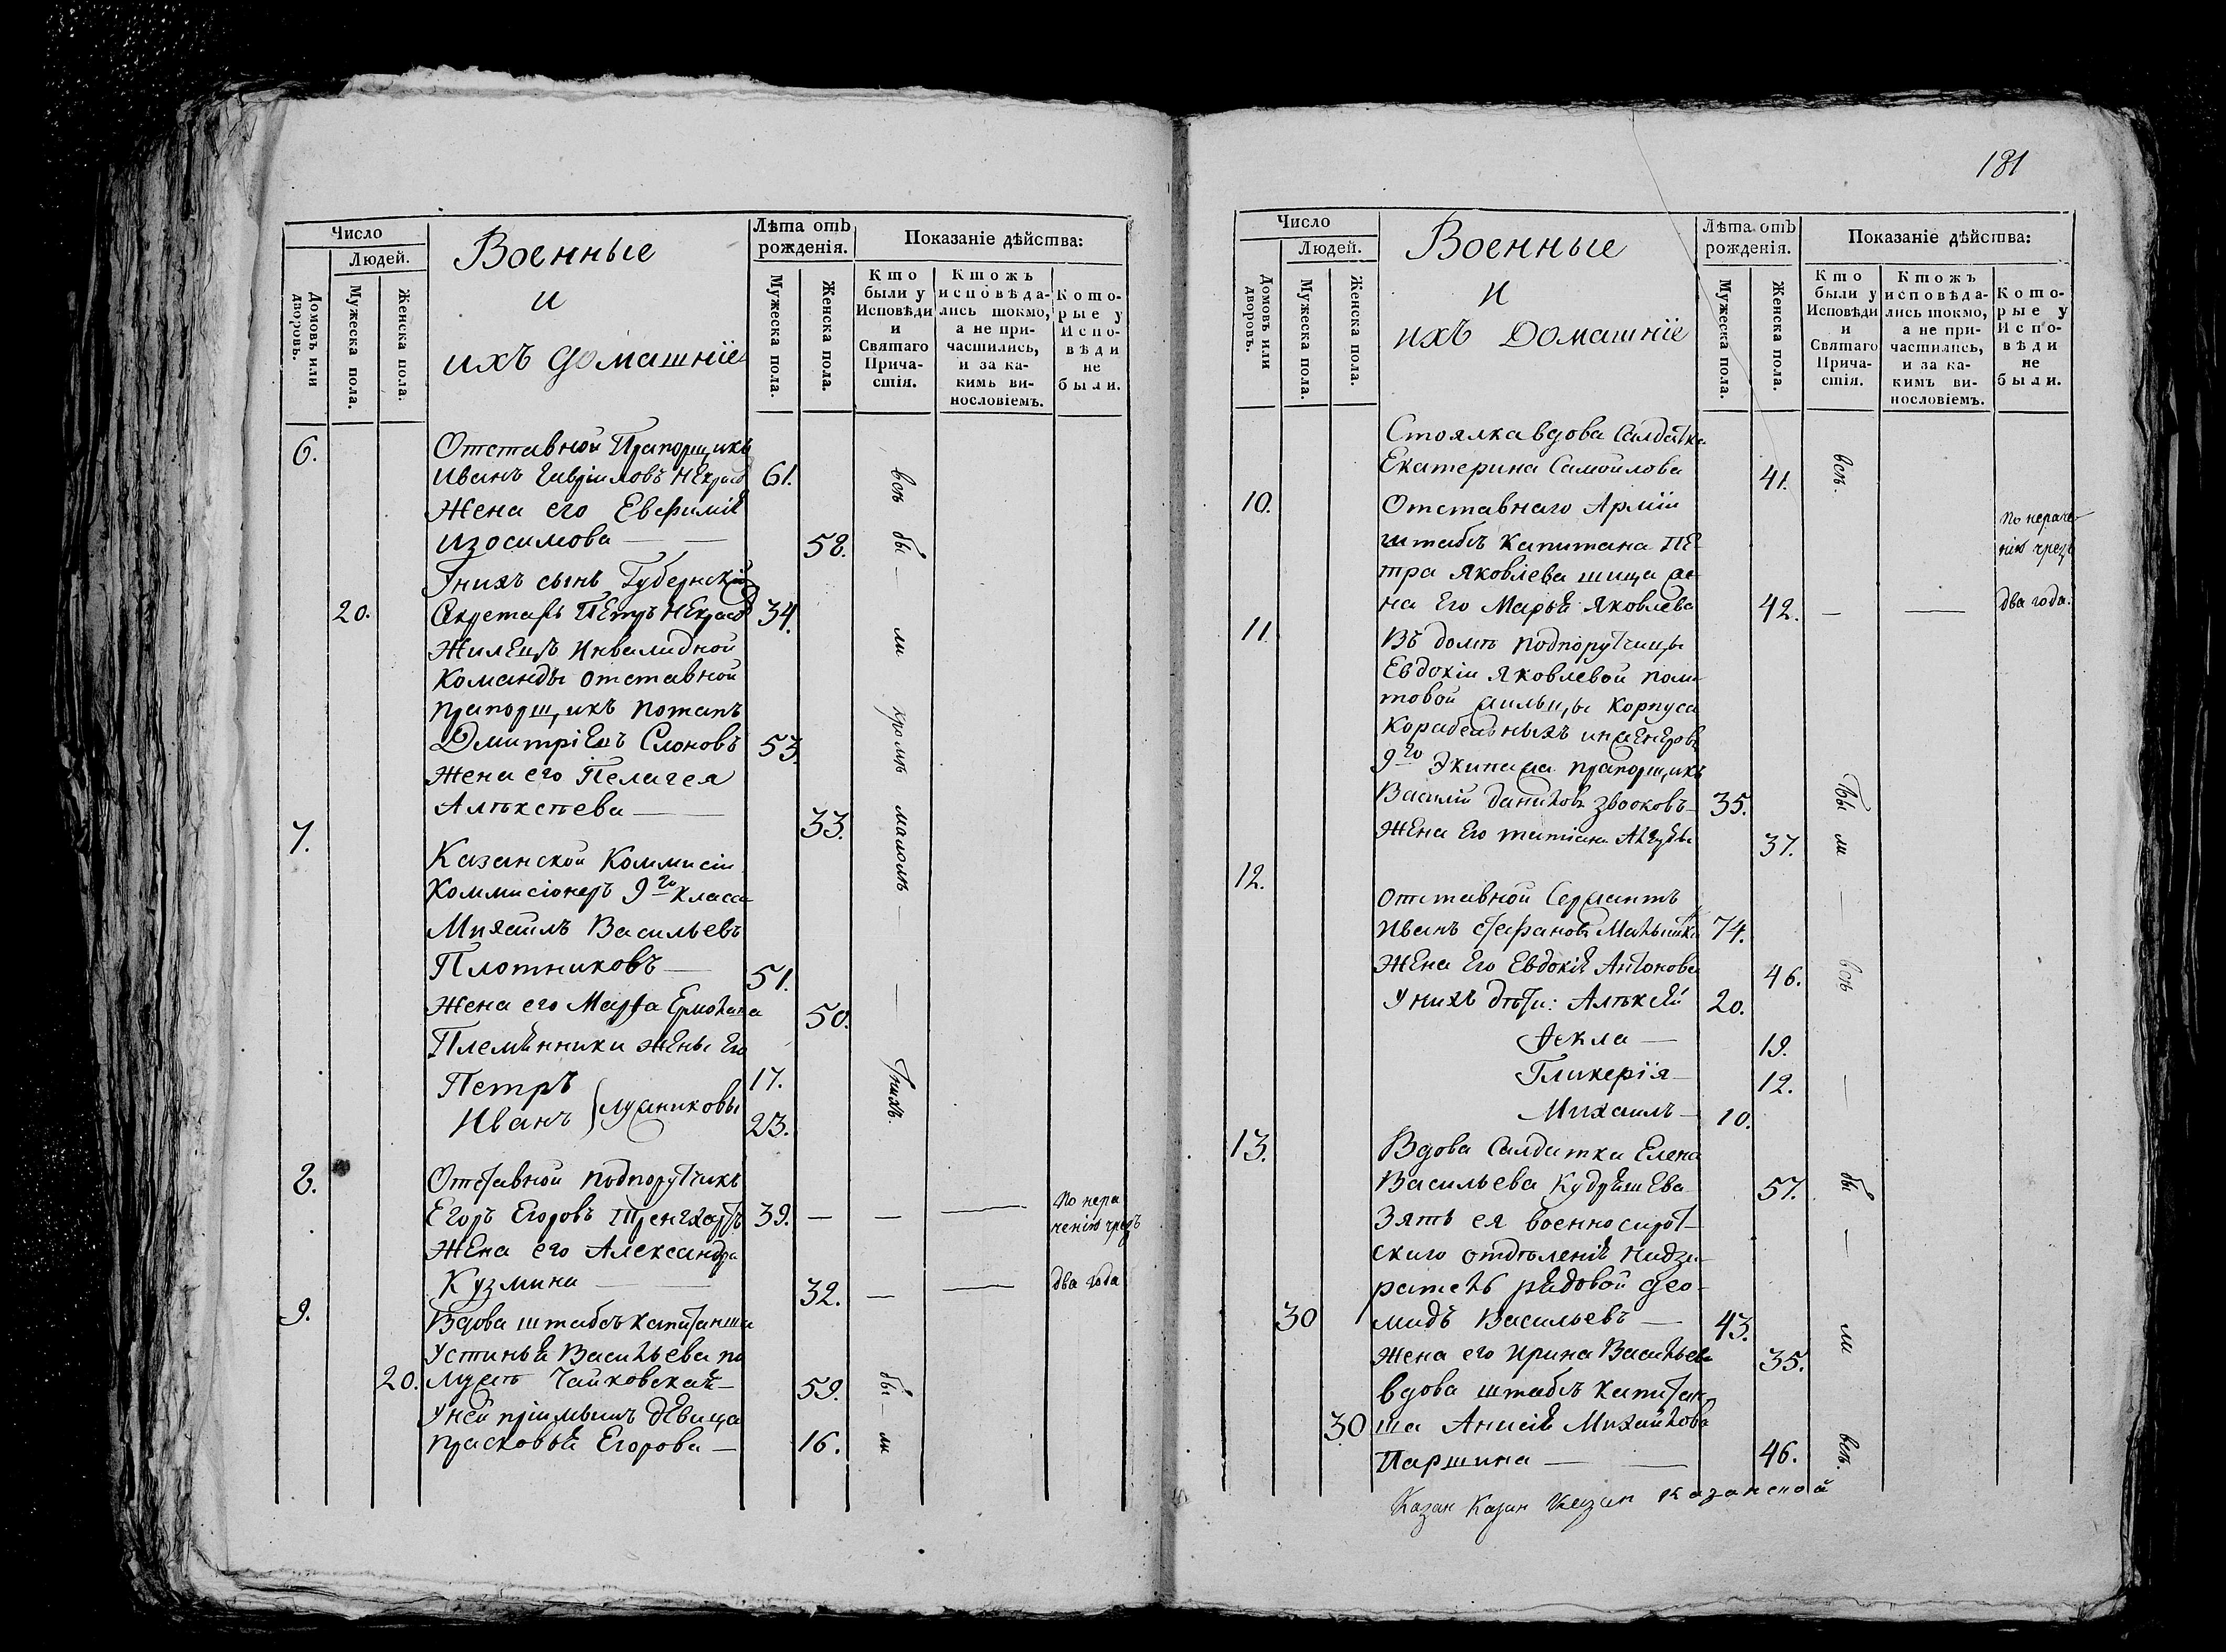 Число
Людей.
Домовъ или дворовъ.
Мужеска пола.
Женска пола.
Военные
и
ихъ домашніе
Лѣта отъ рожденія.
Мужеска пола.
Женска пола.
Показаніе дѣйства:
Кто были у Исповѣди и Святаго Причастія.
Ктожъ исповѣдались токмо, а не причастились, и за какимъ винословіемъ.
Которые у Исповѣди не были.
6. Отставной Прапорщикъ
Иванъ Гавріиловъ Некрасо 61.
Жена его Евфимія
Изосимова — — 58.
У нихъ сынъ Губернскій
20. Секретарь Петръ Некрасо 34.
Жилецъ Инвалидной
Команды отставной
прапорщикъ Потапъ
Дмитріевъ Слоновъ 53.
Жена его Пелагея
Алѣксѣева — 33.
7.
Казанской Коммисіи
Коммисіонеръ 9го класса
Михаилъ Васильевъ
Плотниковъ — 51.
Жена его Марфа Ермолаева 50.
Племянники жены Его
Петръ 17.
Иванъ 23.
всѣ бы — ли кромѣ малолѣ — — тнихъ.
8. Отставной подпоручикъ
Егоръ Егоровъ 39. — — — По нера
чению чрезъ
Жена его Александра
Кузмина — 32. — — два года
9. Вдова штабсъ капитанша
Устинья Васильева по
20. мужѣ Чайковская — 59.
У ней пріимышъ дѣвица
прасковья Егорова — 16.
бы — ли
181
Число
Людей.
Домовъ или дворовъ.
Мужеска пола.
Женска пола.
Военные
и
ихъ Домашніе
Лѣта отъ рожденія.
Мужеска пола.
Женска пола.
Показаніе дѣйства:
Кто были у Исповѣди и Святаго Причастія.
Ктожъ исповѣдались токмо, а не причастились, и за какимъ винословіемъ.
Которые у Исповѣди не были.
Стоялка вдова Салдатка
Екатерина Самойлова 41. всѣ.
10. Отставнаго Арміи
штабсъ капитана Пе
тра Яковлева же
на Его Марья Яковлева 42. — —
По нераче
нію чрезъ
два года.
11. Въ домѣ подпорутчицы
Евдокіи Яковлевой
товой жильцы Корпуса
Корабельныхъ инженеровъ
9го Экипажа прапорщикъ
Василій Даниловъ 35.
Жена Его татіана 37.
12.
Отставной Сержантъ
Иванъ Стефановъ 74.
Жена Его Евдокія Антонова 46.
У нихъ дѣти: Алѣксѣй 20.
Фекла — 19.
Гликерія — 12.
Михаилъ — 10.
13. Вдова Салдатка Елена
Васильева Кудряшева 57.
Зять ея военно сирот—
скаго отдѣленія надзи—
ратель рядовой Део—
30 мидъ Васильевъ — 43.
Жена его Ирина Васильева 35.
вдова штабсъ капитан
30 ша Анисія Михайлова
Паршина — — 46.
бы ли — всѣ — бы — ли всѣ.
Казан Казан Казан Казанской